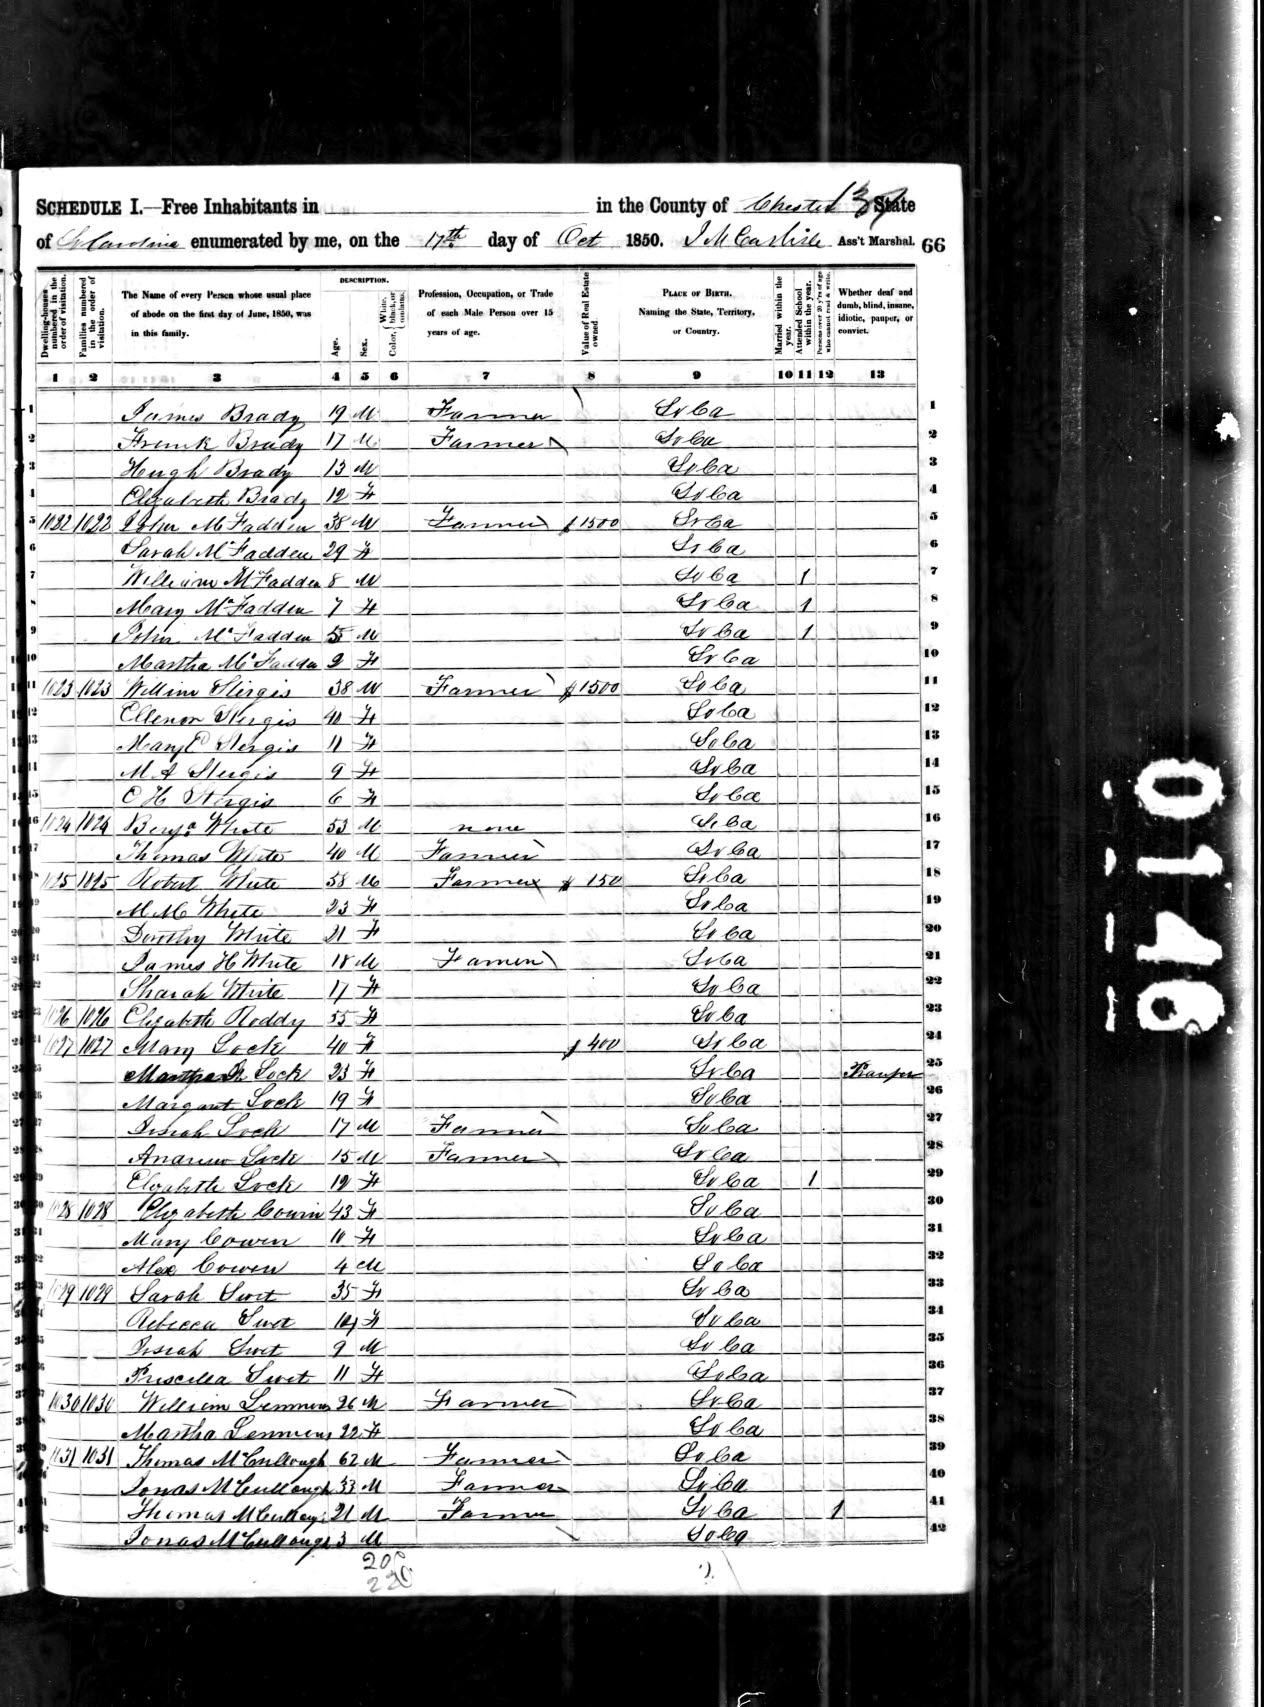 SCHEDULE I.—Free Inhabitants in in the County of Chester State
of S Carolina enumerated by me, on the 17th day of Oct 1850. J M Carlisle Ass't Marshal. 66
Dwelling-houses numbered in the order of visitation.
Families numbered in the order of visitation.
The Name of every Person whose usual place of abode on the first day of June, 1850, was in this family.
DESCRIPTION.
Age.
Sex.
Color, White, black, or mulatto.
Profession, Occupation, or Trade of each Male Person over 15 years of age.
Value of Real Estate owned.
PLACE OF BIRTH. Naming the State, Territory, or Country.
Married within the year.
Attended School within the year.
Persons over 20 y'rs of age who cannot read & write.
Whether deaf and dumb, blind, insane, idiotic, pauper, or convict.
1 2 3 4 5 6 7 8 9 10 11 12 13
1 James Brady 19 M Farmer So Ca 1
2 Frank Brady 17 M Farmer So Ca 2
3 Hugh Brady 13 M So Ca 3
4 Elizabeth Brady 12 F So Ca 4
5 1022 1022 John McFadden 38 M Farmer $1500 So Ca 5
6 Sarah McFadden 29 F So Ca 6
7 William McFadden 8 M So Ca 1 7
8 Mary McFadden 7 F So Ca 1 8
9 John McFadden 5 M So Ca 1 9
10 Martha McFadden 2 F So Ca 10
11 1023 1023 William Stirgis 38 M Farmer $1500 So Ca 11
12 Ellenor Sturgis 40 F So Ca 12
13 Mary E Sturgis 11 F So Ca 13
14 M A Sturgis 9 F So Ca 14
15 C H Sturgis 6 F So Ca 15
16 1024 1024 Benja White 53 M none So Ca 16
17 Thomas White 40 M Farmer So Ca 17
18 1025 1025 Robert White 58 M Farmer $150 So Ca 18
19 M M White 23 F So Ca 19
20 Dorothy White 21 F So Ca 20
21 James H White 18 M Farmer So Ca 21
22 Sharah White 17 F So Ca 22
23 1026 1026 Elizabeth Roddy 55 F So Ca 23
24 1027 1027 Mary Lock 40 F $400 So Ca 24
25 Lock 23 F So Ca Pauper 25
26 Margaret Lock 19 F So Ca 26
27 Josiah Lock 17 M Farmer So Ca 27
28 Andrew Lock 15 M Farmer So Ca 28
29 Elizabeth Lock 12 F So Ca 1 29
30 1028 1028 Elizabeth Cowin 43 F So Ca 30
31 Mary Cowen 10 F So Ca 31
32 Alex Cowen 4 M So Ca 32
33 1029 1029 Sarah Swet 35 F So Ca 33
34 Rebecca Swet F So Ca 34
35 Josiah Swet 9 M So Ca 35
36 Priscilla Swet 11 F So Ca 36
37 1030 1030 William Lemmons 26 M Farmer So Ca 37
38 Martha Lemmons 22 F So Ca 38
39 1031 1031 Thomas McCullough 62 M Farmer So Ca 39
40 Jonas McCullough 33 M Farmer So Ca 40
41 Thomas McCullough 21 M Farmer So Ca 1 41
42 Jonas McCullough 3 M So Ca 42
220
0146